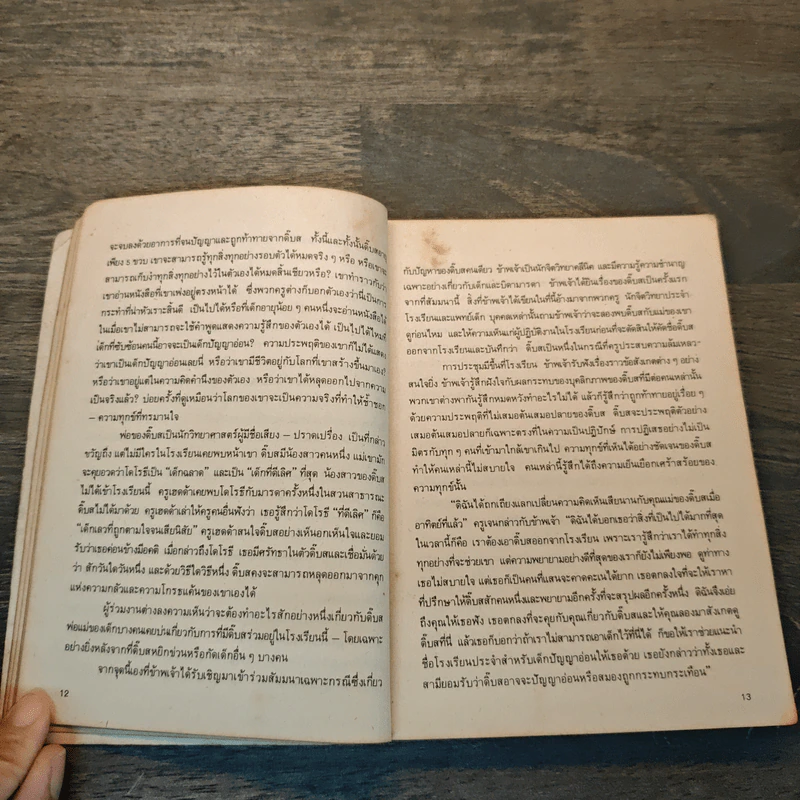 จะจบลงด้วยอาการที่จนปัญญาและถูกท้าทายจากดิ๊บส ทั้งนี้และทั้งนั้นดิ๊บสอายุ
เพียง 5 ขวบ เขาจะสามารถรู้ทุกสิ่งทุกอย่างรอบตัวได้หมดจริง ๆ หรือ หรือเขาจะ
สามารถเก็บงำทุกสิ่งทุกอย่างไว้ในตัวเองได้หมดสิ้นเชียวหรือ? เขาทำราวกับว่า
เขาอ่านหนังสือที่เขาเพ่งอยู่ตรงหน้าได้ ซึ่งพวกครูต่างก็บอกตัวเองว่านี่เป็นการ
กระทำที่น่าหัวเราะสิ้นดี เป็นไปได้หรือที่เด็กอายุน้อย ๆ คนหนึ่งจะอ่านหนังสือได้
ในเมื่อเขาไม่สามารถจะใช้คำพูดแสดงความรู้สึกของตัวเองได้ เป็นไปได้ไหมที่
เด็กที่ซับซ้อนคนนี้อาจจะเป็นเด็กปัญญาอ่อน? ความประพฤติของเขาก็ไม่ได้แสดง
ว่าเขาเป็นเด็กปัญญาอ่อนเลยนี่ หรือว่าเขามีชีวิตอยู่กับโลกที่เขาสร้างขึ้นมาเอง?
หรือว่าเขาอยู่แต่ในความคิดคำนึงของตัวเอง หรือว่าเขาได้หลุดออกไปจากความ
เป็นจริงแล้ว? บ่อยครั้งที่ดูเหมือนว่าโลกของเขาจะเป็นความจริงที่ทำให้ช้ำชอก
– ความทุกข์ที่ทรมานใจ
พ่อของดิ๊บสเป็นนักวิทยาศาสตร์ผู้มีชื่อเสียง – ปราดเปรื่อง เป็นที่กล่าว
ขวัญถึง แต่ไม่มีใครในโรงเรียนเคยพบหน้าเขา ดิ๊บสมีน้องสาวคนหนึ่ง แม่เขามัก
จะคุยอวดว่าโดโรธีเป็น “เด็กฉลาด” และเป็น “เด็กที่ดีเลิศ” ที่สุด น้องสาวของดิ๊บส
ไม่ได้เข้าโรงเรียนนี้ ครูเฮดด้าเคยพบโดโรธีกับมารดาครั้งหนึ่งในสวนสาธารณะ
ดิ๊บสไม่ได้มาด้วย ครูเฮดด้าเล่าให้ครูคนอื่นฟังว่า เธอรู้สึกว่าโดโรธี “ที่ดีเลิศ” ก็คือ
“เด็กเลวที่ถูกตามใจจนเสียนิสัย” ครูเฮดด้าสนใจดิ๊บสอย่างเห็นอกเห็นใจและยอม
รับว่าเธอค่อนข้างมีอคติ เมื่อกล่าวถึงโดโรธี เธอมีศรัทธาในตัวดิ๊บสและเชื่อมั่นด้วย
ว่า สักวันใดวันหนึ่ง และด้วยวิธีใดวิธีหนึ่ง ดิ๊บสคงจะสามารถหลุดออกมาจากคุก
แห่งความกลัวและความโกรธแค้นของเขาเองได้
ผู้ร่วมงานต่างลงความเห็นว่าจะต้องทำอะไรสักอย่างหนึ่งเกี่ยวกับดิ๊บส
พ่อแม่ของเด็กบางคนเคยบ่นเกี่ยวกับการที่มีดิ๊บสร่วมอยู่ในโรงเรียนนี้ – โดยเฉพาะ
อย่างยิ่งหลังจากที่ดิ๊บสหยิกข่วนหรือกัดเด็กอื่น ๆ บางคน
จากจุดนี้เองที่ข้าพเจ้าได้รับเชิญมาเข้าร่วมสัมมนาเฉพาะกรณีซึ่งเกี่ยว
12
กับปัญหาของดิ๊บสคนเดียว ข้าพเจ้าเป็นนักจิตวิทยาคลีนิค และมีความรู้ความชำนาญ
เฉพาะอย่างเกี่ยวกับเด็กและบิดามารดา ข้าพเจ้าได้ยินเรื่องของดิ๊บสเป็นครั้งแรก
จากที่สัมมนานี้ สิ่งที่ข้าพเจ้าได้เขียนในที่นี้อ้างมาจากพวกครู นักจิตวิทยาประจำ
โรงเรียนและแพทย์เด็ก บุคคลเหล่านั้นถามข้าพเจ้าว่าจะลองพบดิ๊บสกับแม่ของเขา
ดูก่อนไหม และให้ความเห็นแก่ผู้ปฏิบัติงานในโรงเรียนก่อนที่จะตัดสินให้คัดชื่อดิ๊บส
ออกจากโรงเรียนและบันทึกว่า ดิ๊บสเป็นหนึ่งในกรณีที่ครูประสบความล้มเหลว
การประชุมมีขึ้นที่โรงเรียน ข้าพเจ้ารับฟังเรื่องราวข้อสังเกตต่าง ๆ อย่าง
สนใจยิ่ง ข้าพเจ้ารู้สึกฝังใจกับผลกระทบของบุคลิกภาพของดิ๊บสที่มีต่อคนเหล่านั้น
พวกเขาต่างพากันรู้สึกหมดหวังทำอะไรไม่ได้ แล้วก็รู้สึกว่าถูกท้าทายอยู่เรื่อย ๆ
ด้วยความประพฤติที่ไม่เสมอต้นเสมอปลายของดิ๊บส ดิ๊บสจะประพฤติตัวอย่าง
เสมอต้นเสมอปลายก็เฉพาะตรงที่ในความเป็นปฏิปักษ์ การปฏิเสธอย่างไม่เป็น
มิตรกับทุก ๆ คนที่เข้ามาใกล้เขาเกินไป ความทุกข์ที่เห็นได้อย่างชัดเจนของดิ๊บส
ทำให้คนเหล่านี้ไม่สบายใจ คนเหล่านี้รู้สึกได้ถึงความเย็นเยือกเศร้าสร้อยของ
ความทุกข์นั้น
“ดิฉันได้ถกเถียงแลกเปลี่ยนความคิดเห็นเสียนานกับคุณแม่ของดิ๊บสเมื่อ
อาทิตย์ที่แล้ว” ครูเจนกล่าวกับข้าพเจ้า “ดิฉันได้บอกเธอว่าสิ่งที่เป็นไปได้มากที่สุด
ในเวลานี้ก็คือ เราต้องเอาดิ๊บสออกจากโรงเรียน เพราะเรารู้สึกว่าเราได้ทำทุกสิ่ง
ทุกอย่างที่จะช่วยเขา แต่ความพยายามอย่างดีที่สุดของเราก็ยังไม่เพียงพอ ดูท่าทาง
เธอไม่สบายใจ แต่เธอก็เป็นคนที่แสนจะคาดคะเนได้ยาก เธอตกลงใจที่จะให้เราหา
ที่ปรึกษาให้ดิ๊บสสักคนหนึ่งและพยายามอีกครั้งที่จะสรุปผลอีกครั้งหนึ่ง ดิฉันจึงเอ่ย
ถึงคุณให้เธอฟัง เธอตกลงที่จะคุยกับคุณเกี่ยวกับดิ๊บสและให้คุณลองมาสังเกตดู
ดิ๊บสที่นี่ แล้วเธอก็บอกว่าถ้าเราไม่สามารถเอาเด็กไว้ที่นี่ได้ ก็ขอให้เราช่วยแนะนำ
ชื่อโรงเรียนประจำสำหรับเด็กปัญญาอ่อนให้เธอด้วย เธอยังกล่าวว่าทั้งเธอและ
สามียอมรับว่าดิ๊บสอาจจะปัญญาอ่อนหรือสมองถูกกระทบกระเทือน”
13